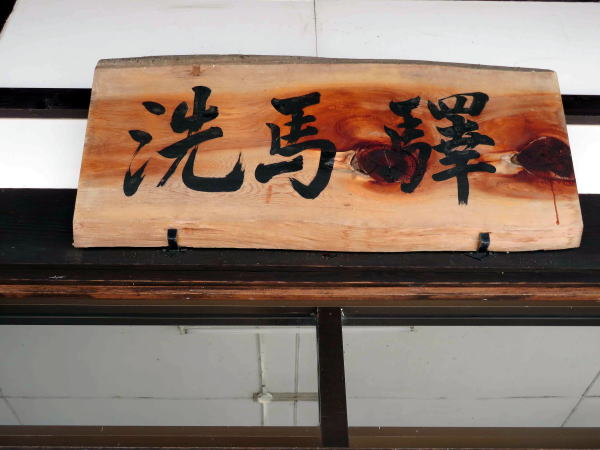 洗馬驛